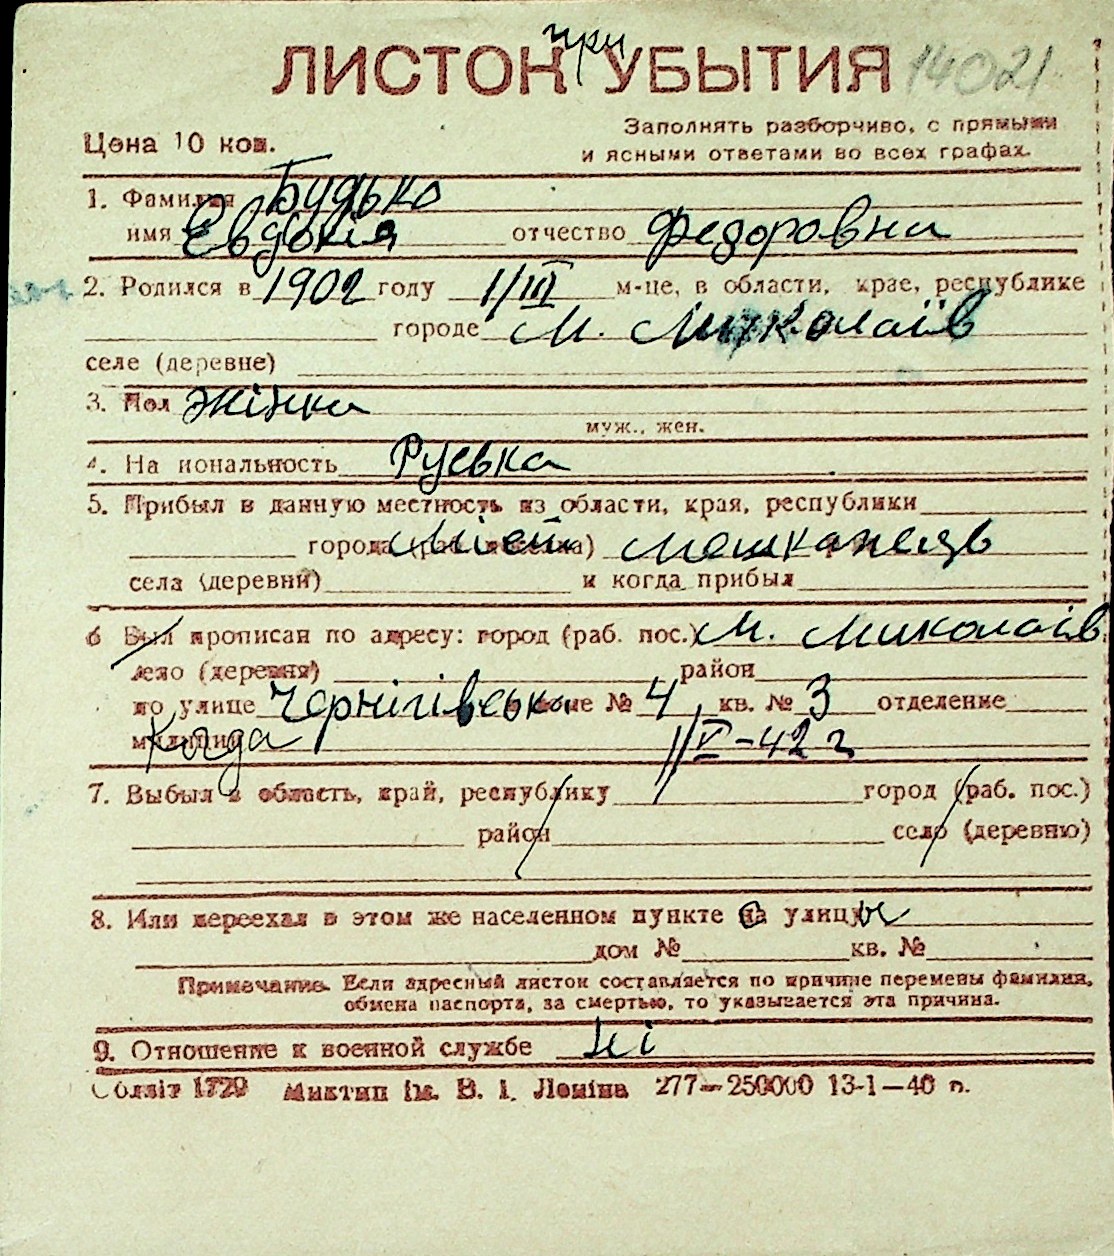 ЛИСТОК при УБЫТИЯ 14021
Заполнять разборчиво, с прямыми
Цена 10 коп.
и ясными ответами во всех графах.
1. Фамилия Будько
имя Евдокія отчество Федоровна
2. Родился в 1902 году 1/III м-це, в области, крае, республике
городе м. Миколаїв
селе (деревне)
3. Пол жінка
муж., жен.
4. На иональность Руська
5. Прибыл в данную местность из области, края, республики
города мешканець
села (деревни) и когда прибыл
6 Был прописан по адресу: город (раб. пос.) м. Миколаїв
село (деревня) район
по улице Чернігівська доме № 4 кв. № 3 отделение
милиции Когда 1/V-42 г
7. Выбыл в область, край, республику город (раб. пос.)
район село (деревню)
8. Или переехал в этом же населенном пункте с улицы
дом № кв. №
Примечание. Если адресный листок составляется по причине перемены фамилии,
обмена паспорта, за смертью, то указывается эта причина.
9. Отношение к военной службе ні
Облліт 1729 Миктип ім. В. І. Леніна 277—250000 13-1—40 р.